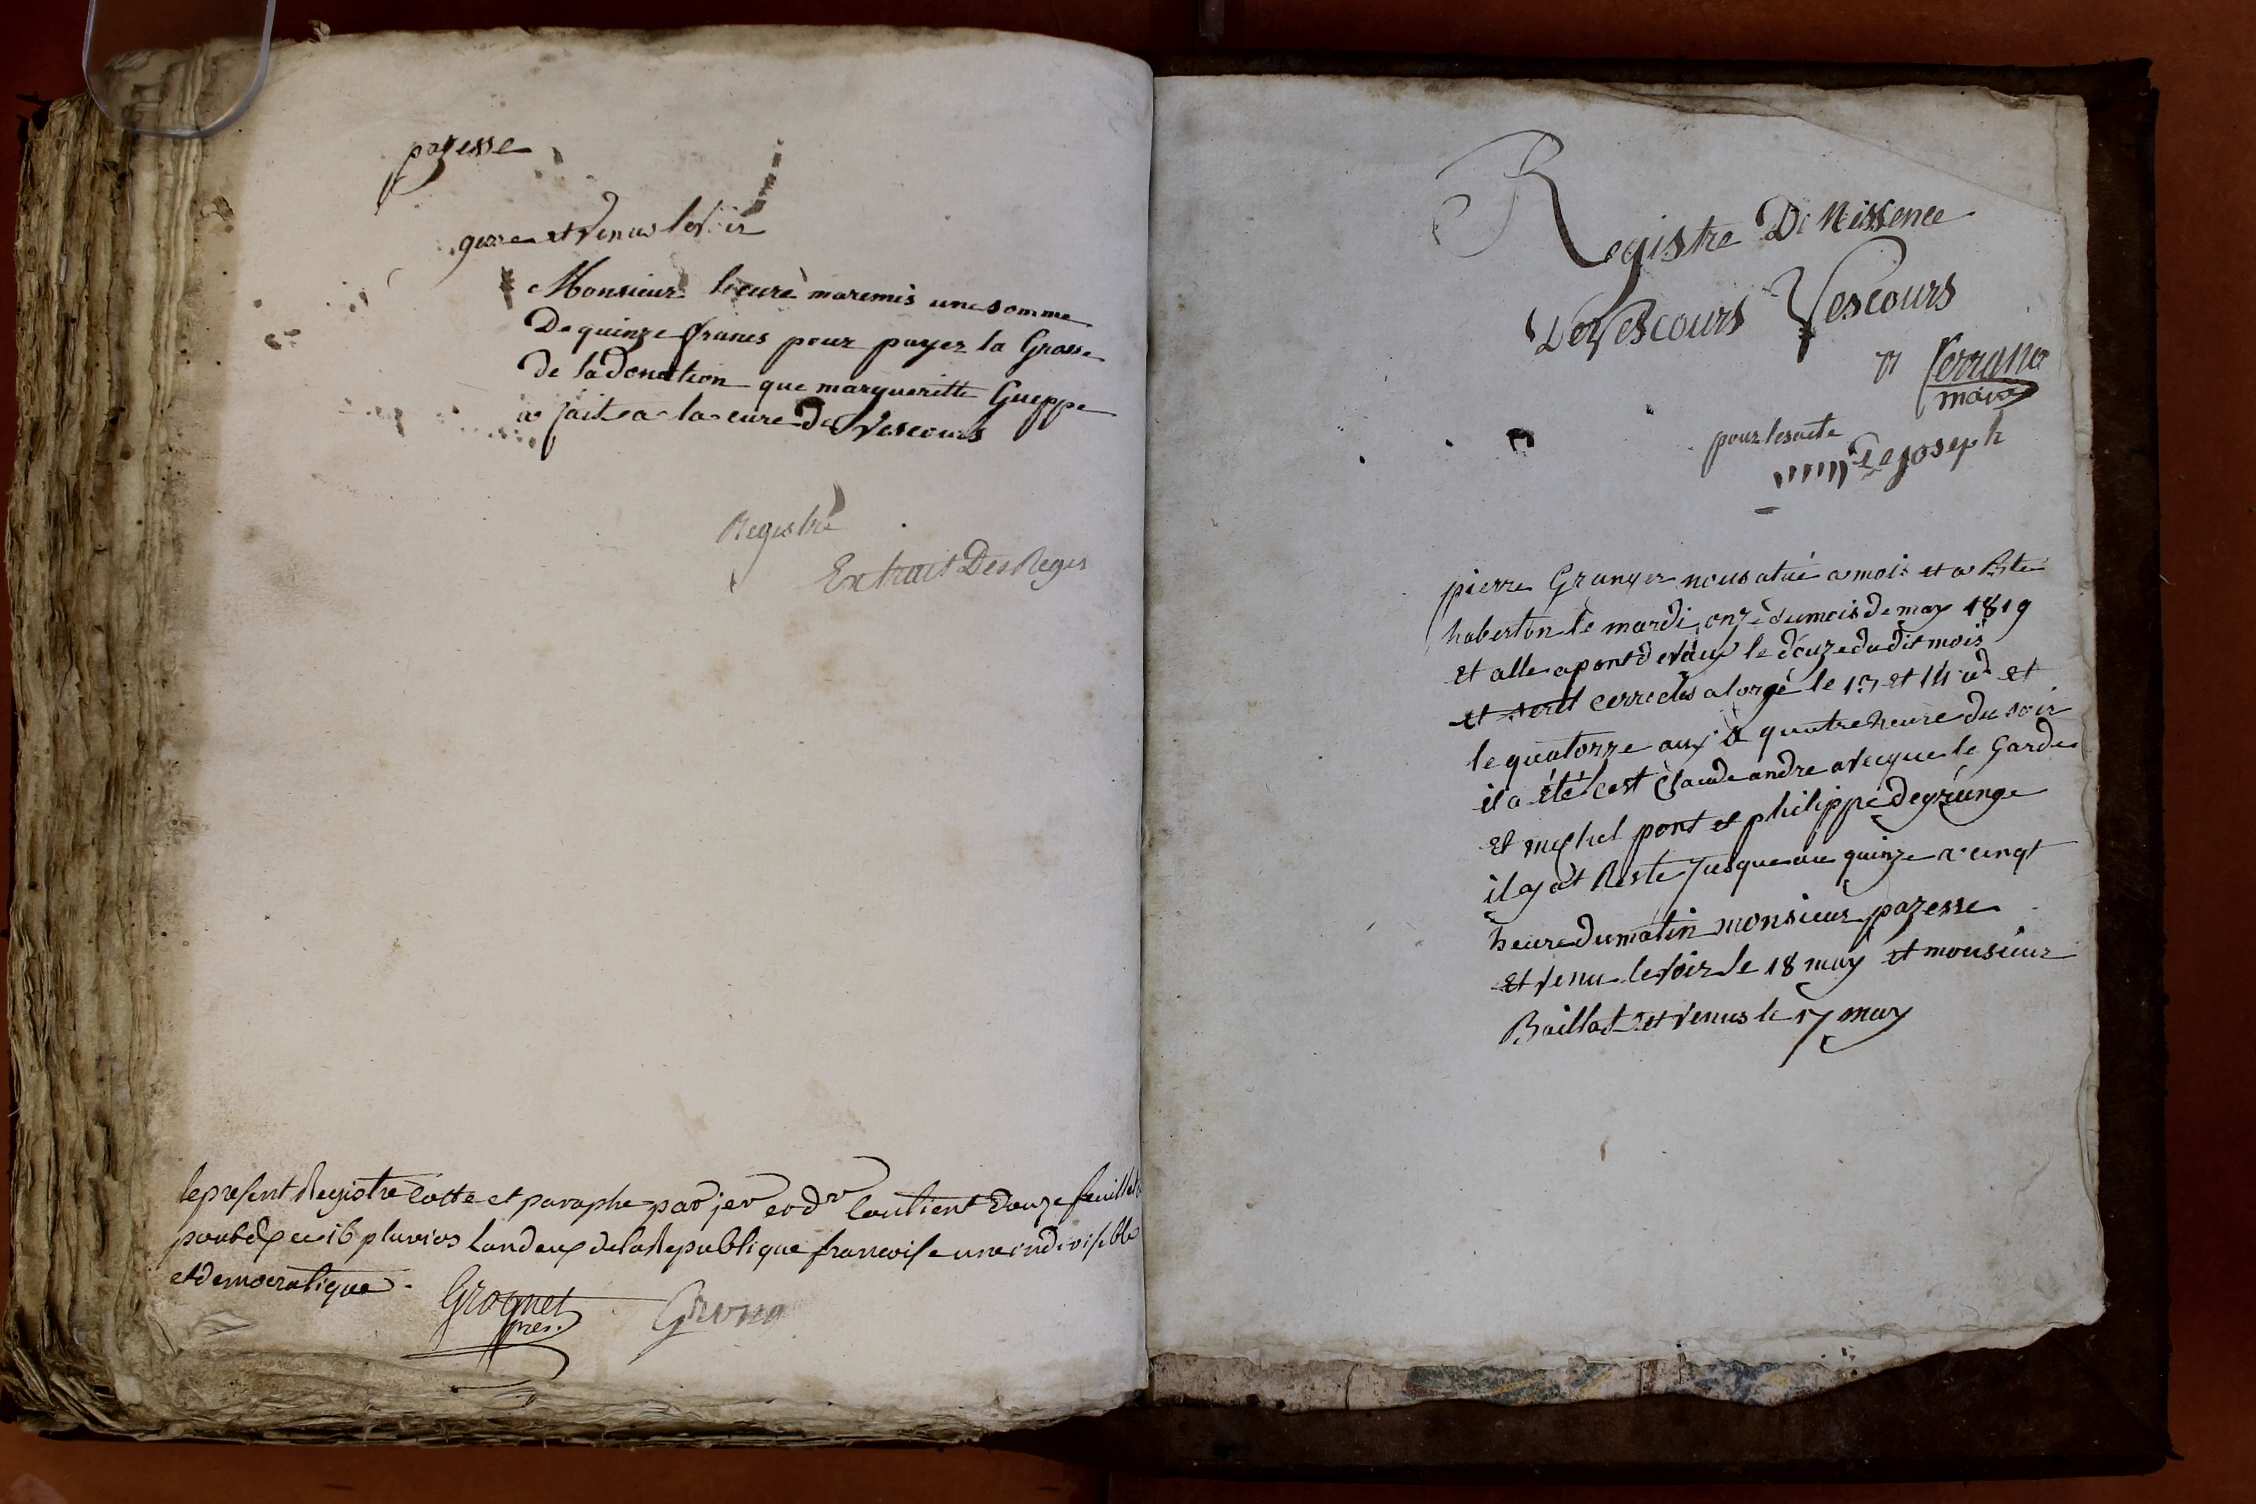 pazesse
et venus le voir
Monsieur le curé ma remis une somme
De quinze francs pour payer la Grosse
de la donation que margueritte Gueppe
a fait a la cure De Vescours
Registre
Extrait Des Regis
le present Registre cotté et paraphé par contient douze feuillets
ce 16 pluvios Lan deux de la Republique francoise une indivisible
et democratique
Grognet
pres.
Registre De Nissence
De Vescours Vescours
Ferrand
maire
pour les acte
De Joseph
pierre Granger nous a tué a mois et a
le mardi onze du mois de may 1819
et alle a pont devaux le douze du dit mois
et seret cerrecles a lorgé le 13 et 14 ud et
le quatorze aux a quatre heure du soir
il a été cest Claude andre avecque le Garde
et michel pont et philippe degrange
il y at Reste Jusque au quinze a cinq
heure du matin monsieur pazesse
et venu le voir le 18 may et monsieur
Baillat et venus le 17 may